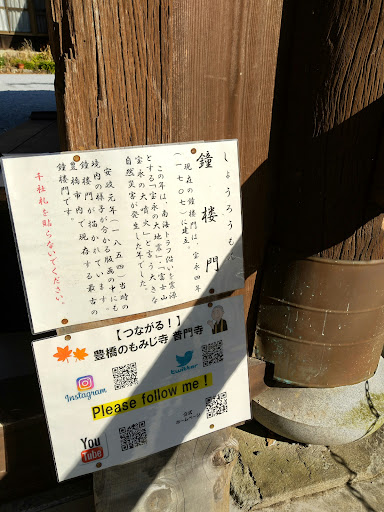 しょうろうもん
鐘楼門
現在の鐘楼門は、宝永四年
(一七〇七)に建立。
この年は、南海トラフ沿いを震源
とする「宝永の大地震」「富士山
宝永の大噴火」と言う大きな
自然災害が発生した年でした。
安政元年(一八五四)当時の
境内の様子が分かる版画の中にも
鐘楼門が描かれています。
豊橋市内で現存する最古の
鐘楼門です。
千社札を貼らないでください。
【つながる!】
豊橋のもみじ寺 普門寺
Instagram
twitter
Please follow me!
YouTube
公式
ホームページ